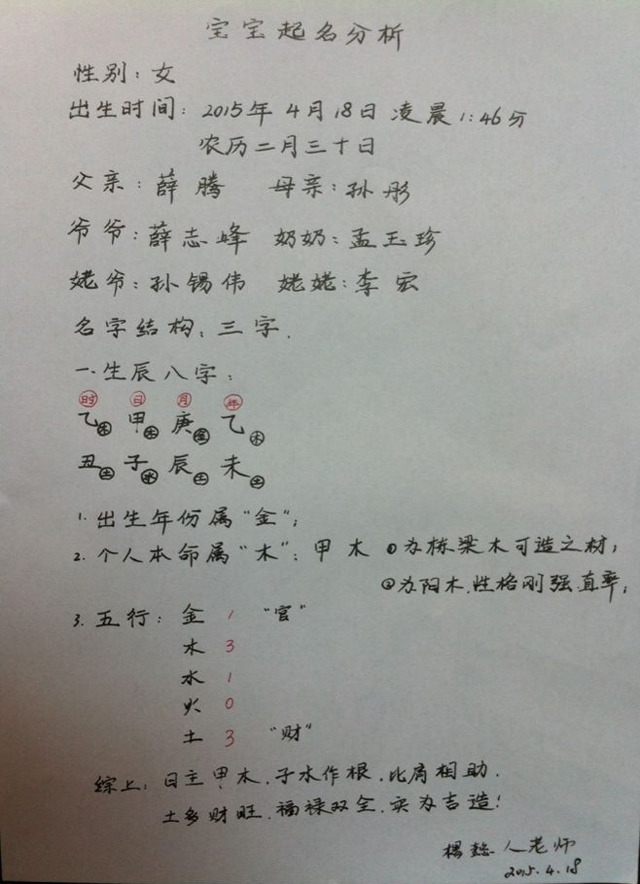 宝宝起名分析
性别：女
出生时间：2015年4月18日凌晨1:46分
农历二月三十日
父亲：薛腾 母亲：孙彤
爷爷：薛志峰 奶奶：孟玉珍
姥爷：孙锡伟 姥姥：李宏
名字结构：三字.
一.生辰八字：
时 日 月 年
乙木 甲木 庚金 乙木
丑土 子水 辰土 未土
1.出生年份属“金”；
2.个人本命属“木”：甲木 ①为栋梁木可造之材；
②为阳木.性格刚强直率；
3.五行：金 1 “官”
木 3
水 1
火 0
土 3 “财”
综上：日主甲木.子水作根.比肩相助.
土多财旺.福禄双全.实为吉造！
杨懿人老师
2015.4.18